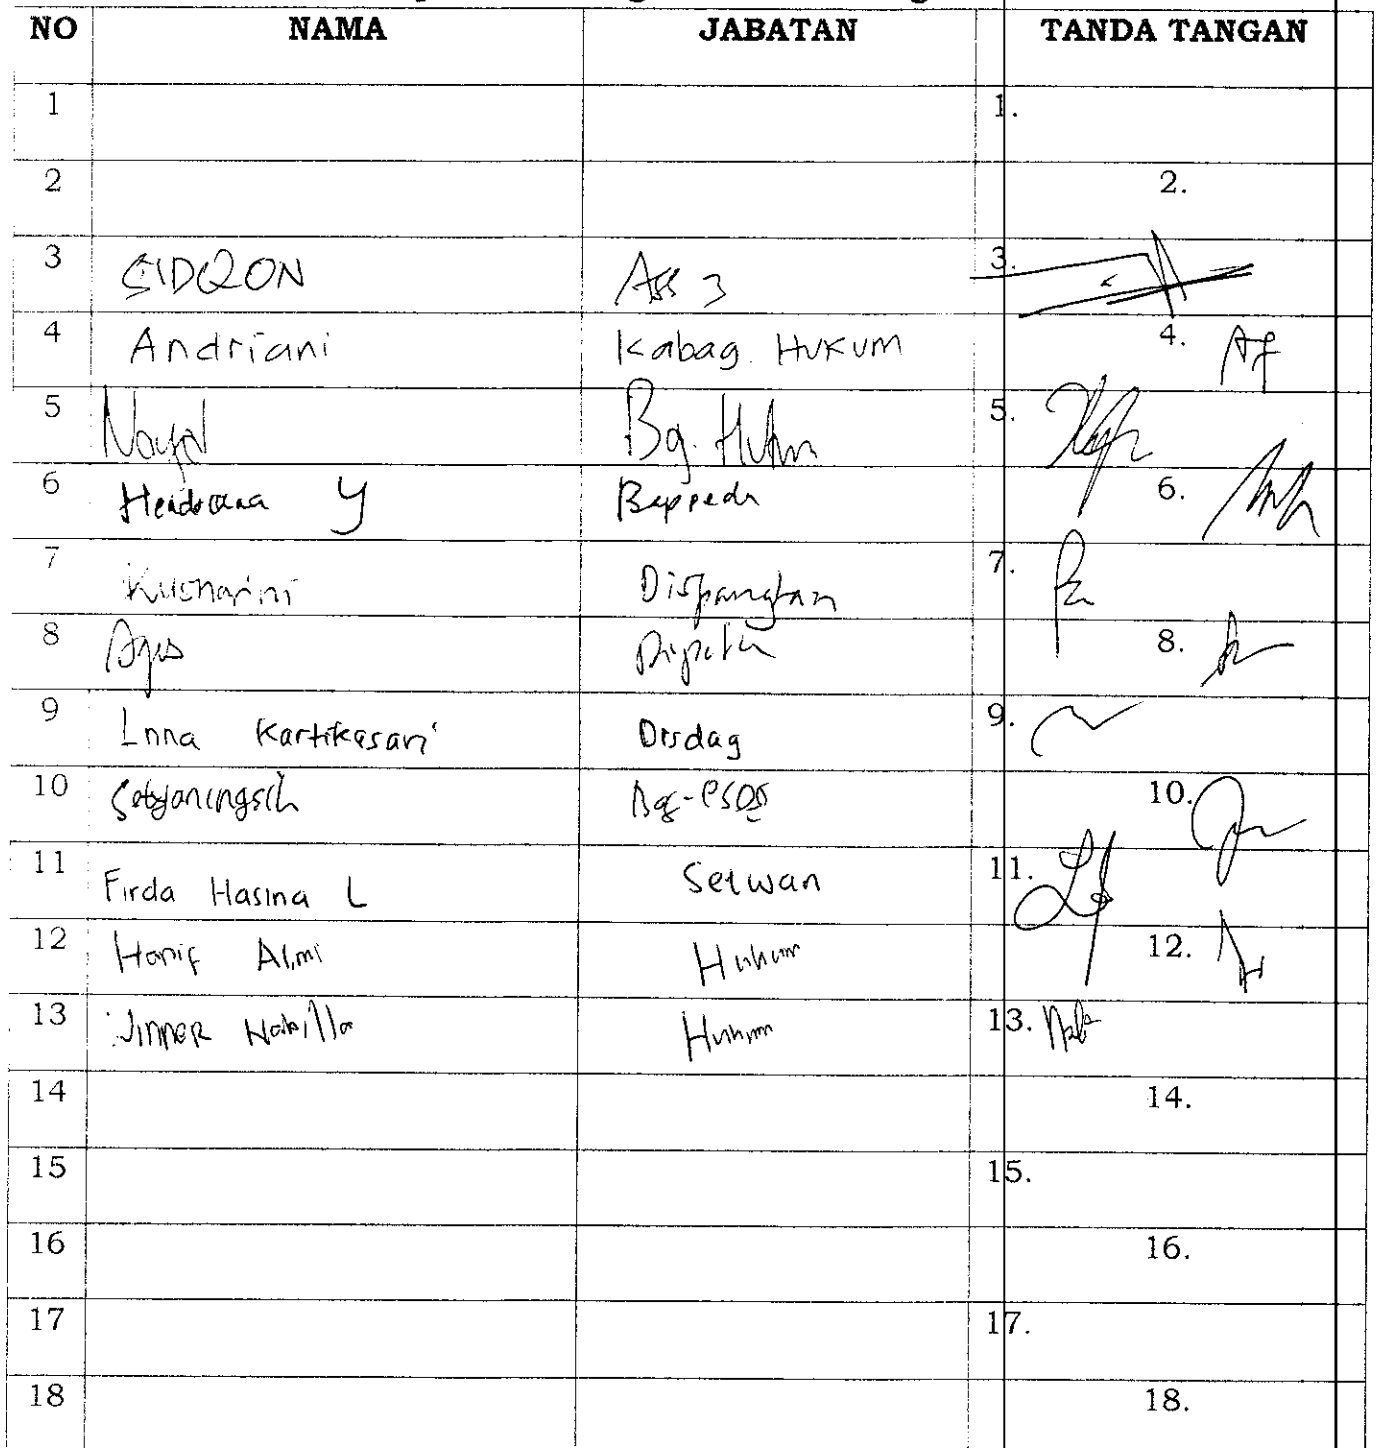 NO NAMA JABATAN TANDA TANGAN
1 1.
2 2.
3 SIDQON Ass 3 3.
4 Andriani Kabag. Hukum 4.
5 Bg. 5.
6 Y Bappeda 6.
7 Kusnarini Dispangtan 7.
8 Agus 8.
9 Inna Kartikasari Disdag 9.
10 Setyaningsih 10.
11 Firda Hasina L Setwan 11.
12 Hanif Almi Hukum 12.
13 Nabilla Hukum 13.
14 14.
15 15.
16 16.
17 17.
18 18.